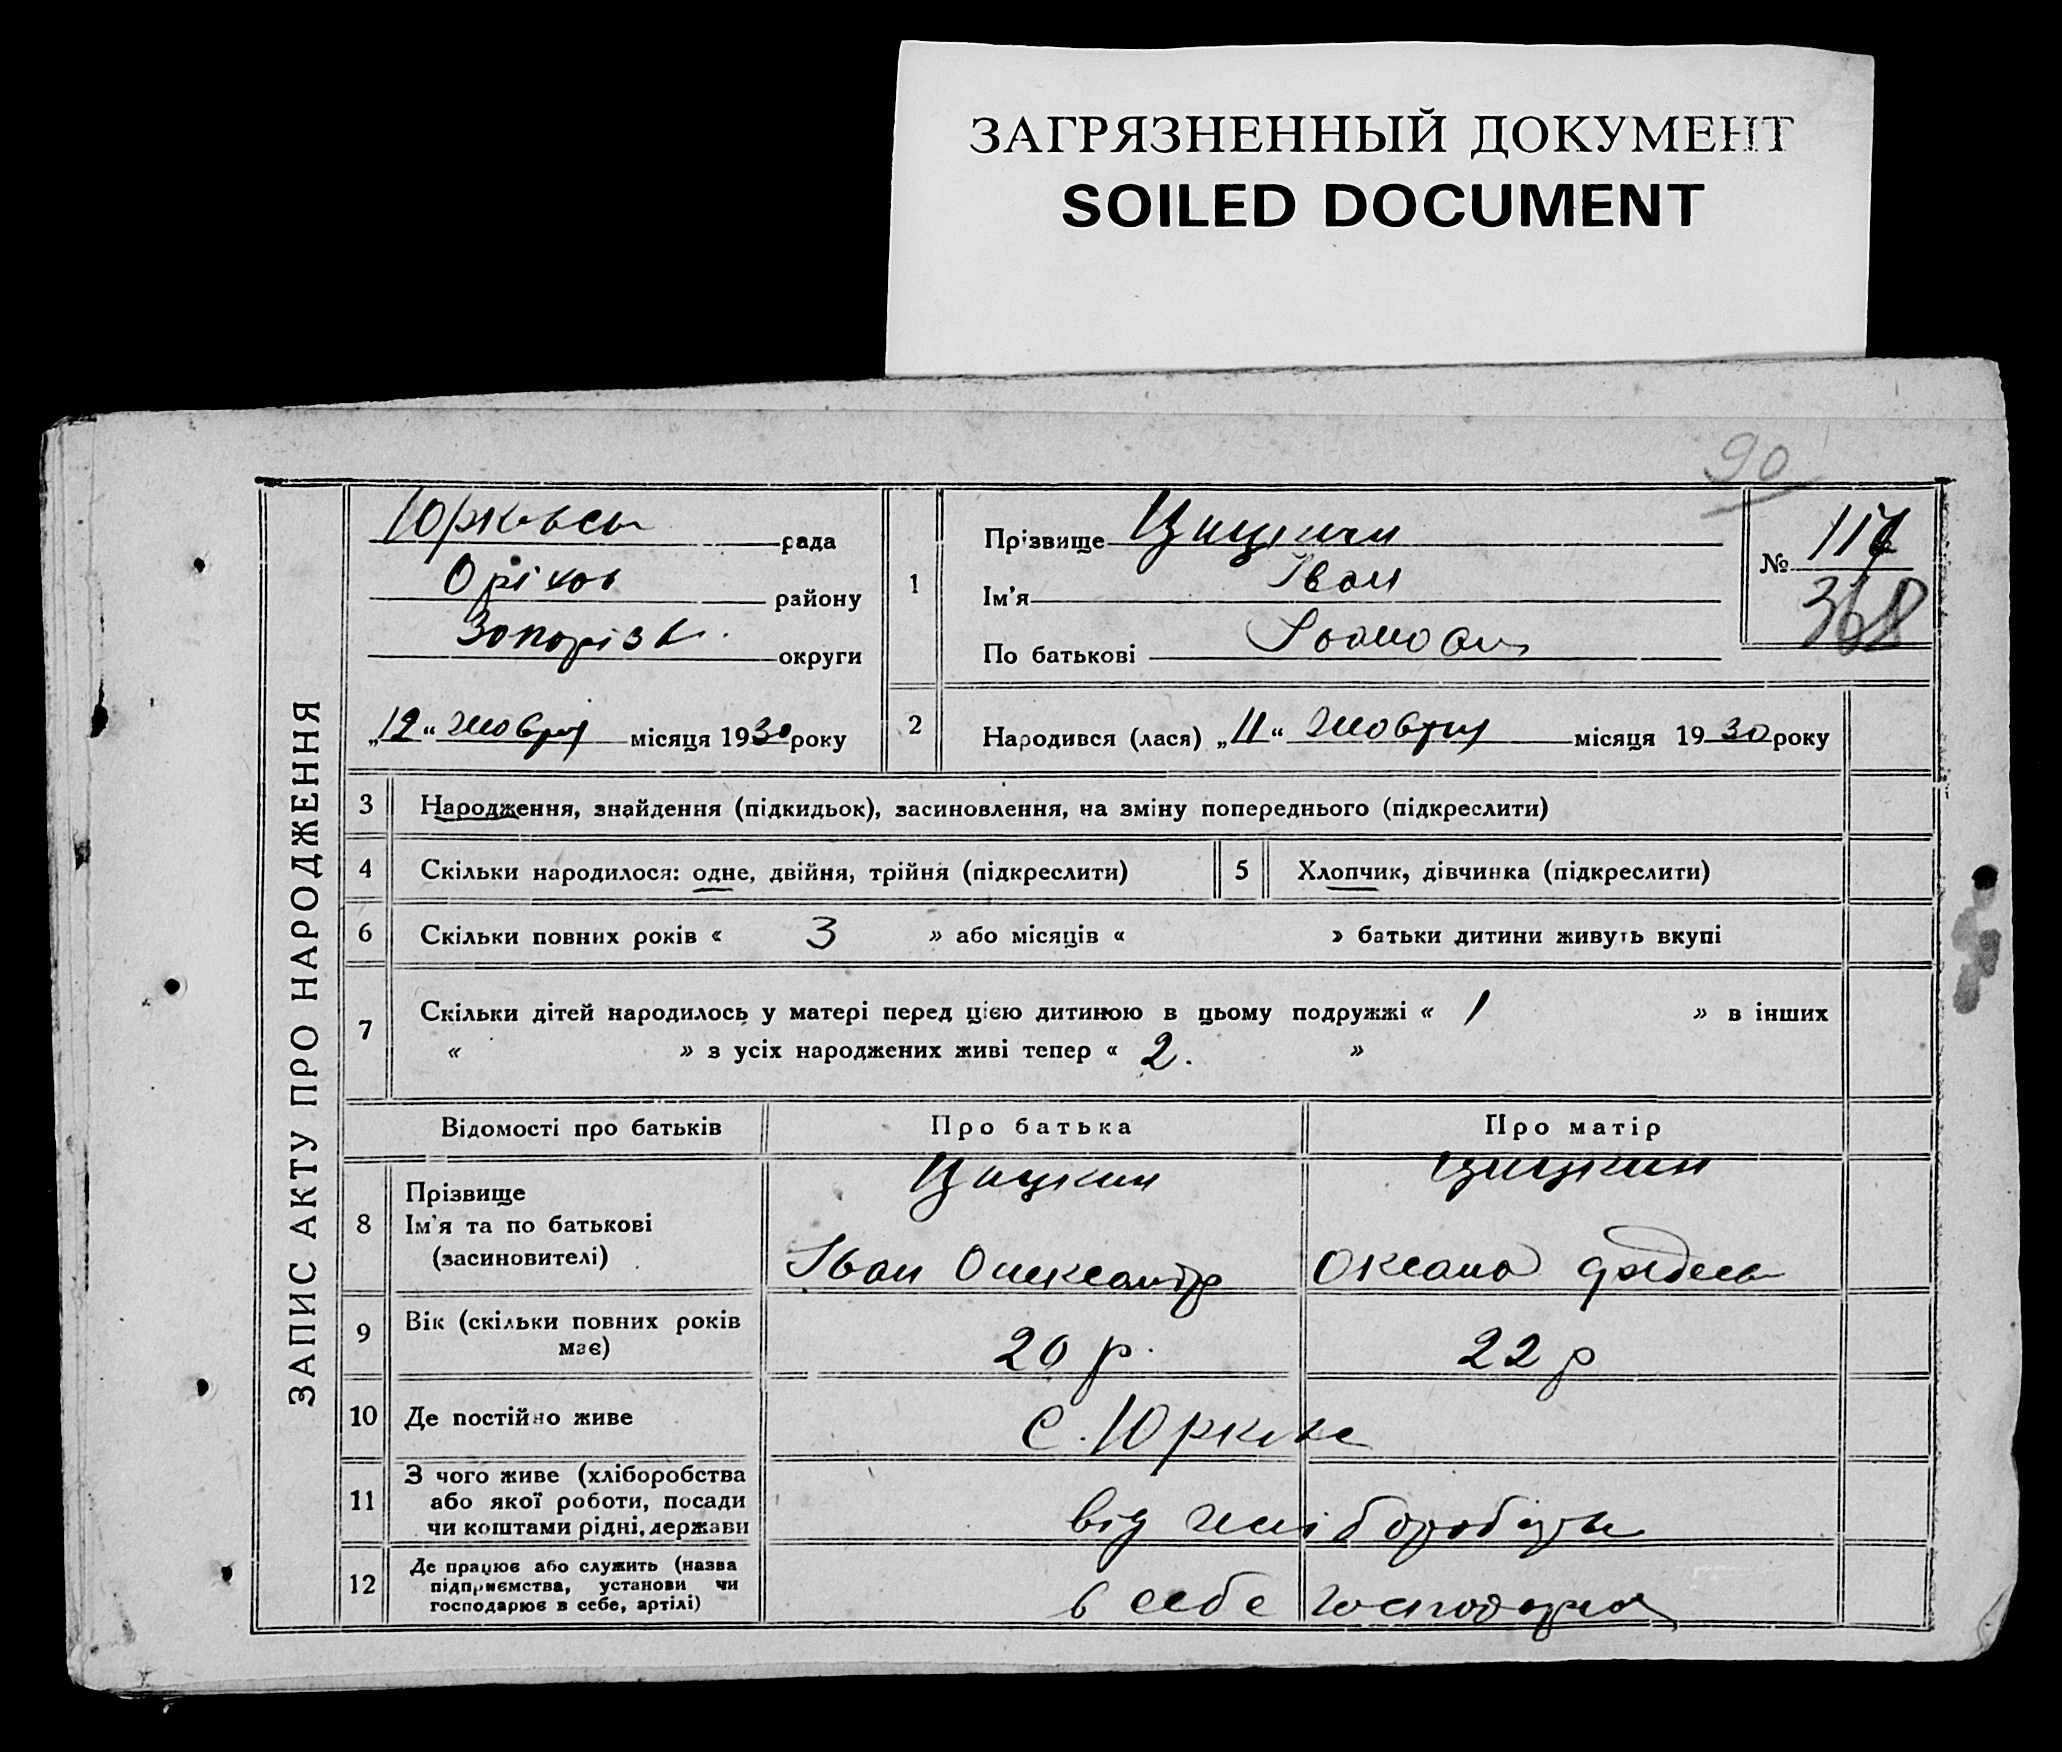 ЗАГРЯЗНЕННЫЙ ДОКУМЕНТ
SOILED DOCUMENT
90
ЗАПИС АКТУ ПРО НАРОДЖЕННЯ
Юрківськ рада
Оріхов району
Запорізьк. округи
„12“ жовтня місяця 1930 року
1
Прізвище Цицкин
Ім'я Іван
По батькові Іванович
№ 117
368
2 Народився (лася) „11“ жовтня місяця 1930 року
3 Народження, знайдення (підкидьок), засиновлення, на зміну попереднього (підкреслити)
4 Скільки народилося: одне, двійня, трійня (підкреслити)
5 Хлопчик, дівчинка (підкреслити)
6 Скільки повних років « 3 » або місяців « » батьки дитини живуть вкупі
7 Скільки дітей народилось у матері перед цією дитиною в цьому подружжі « 1 » в інших
« » з усіх народжених живі тепер « 2. »
Відомості про батьків Про батька Про матір
8 Прізвище Цицкин Цицкин
Ім'я та по батькові
(засиновителі) Іван Олександр Оксана
9 Вік (скільки повних років
має) 20 р. 22 р
10 Де постійно живе С. Юрківк
11 З чого живе (хліборобства
або якої роботи, посади
чи коштами рідні, держави
від хліборобства
12 Де працює або служить (назва
підприємства, установи чи
господарює в себе, артілі)
в себе господарює